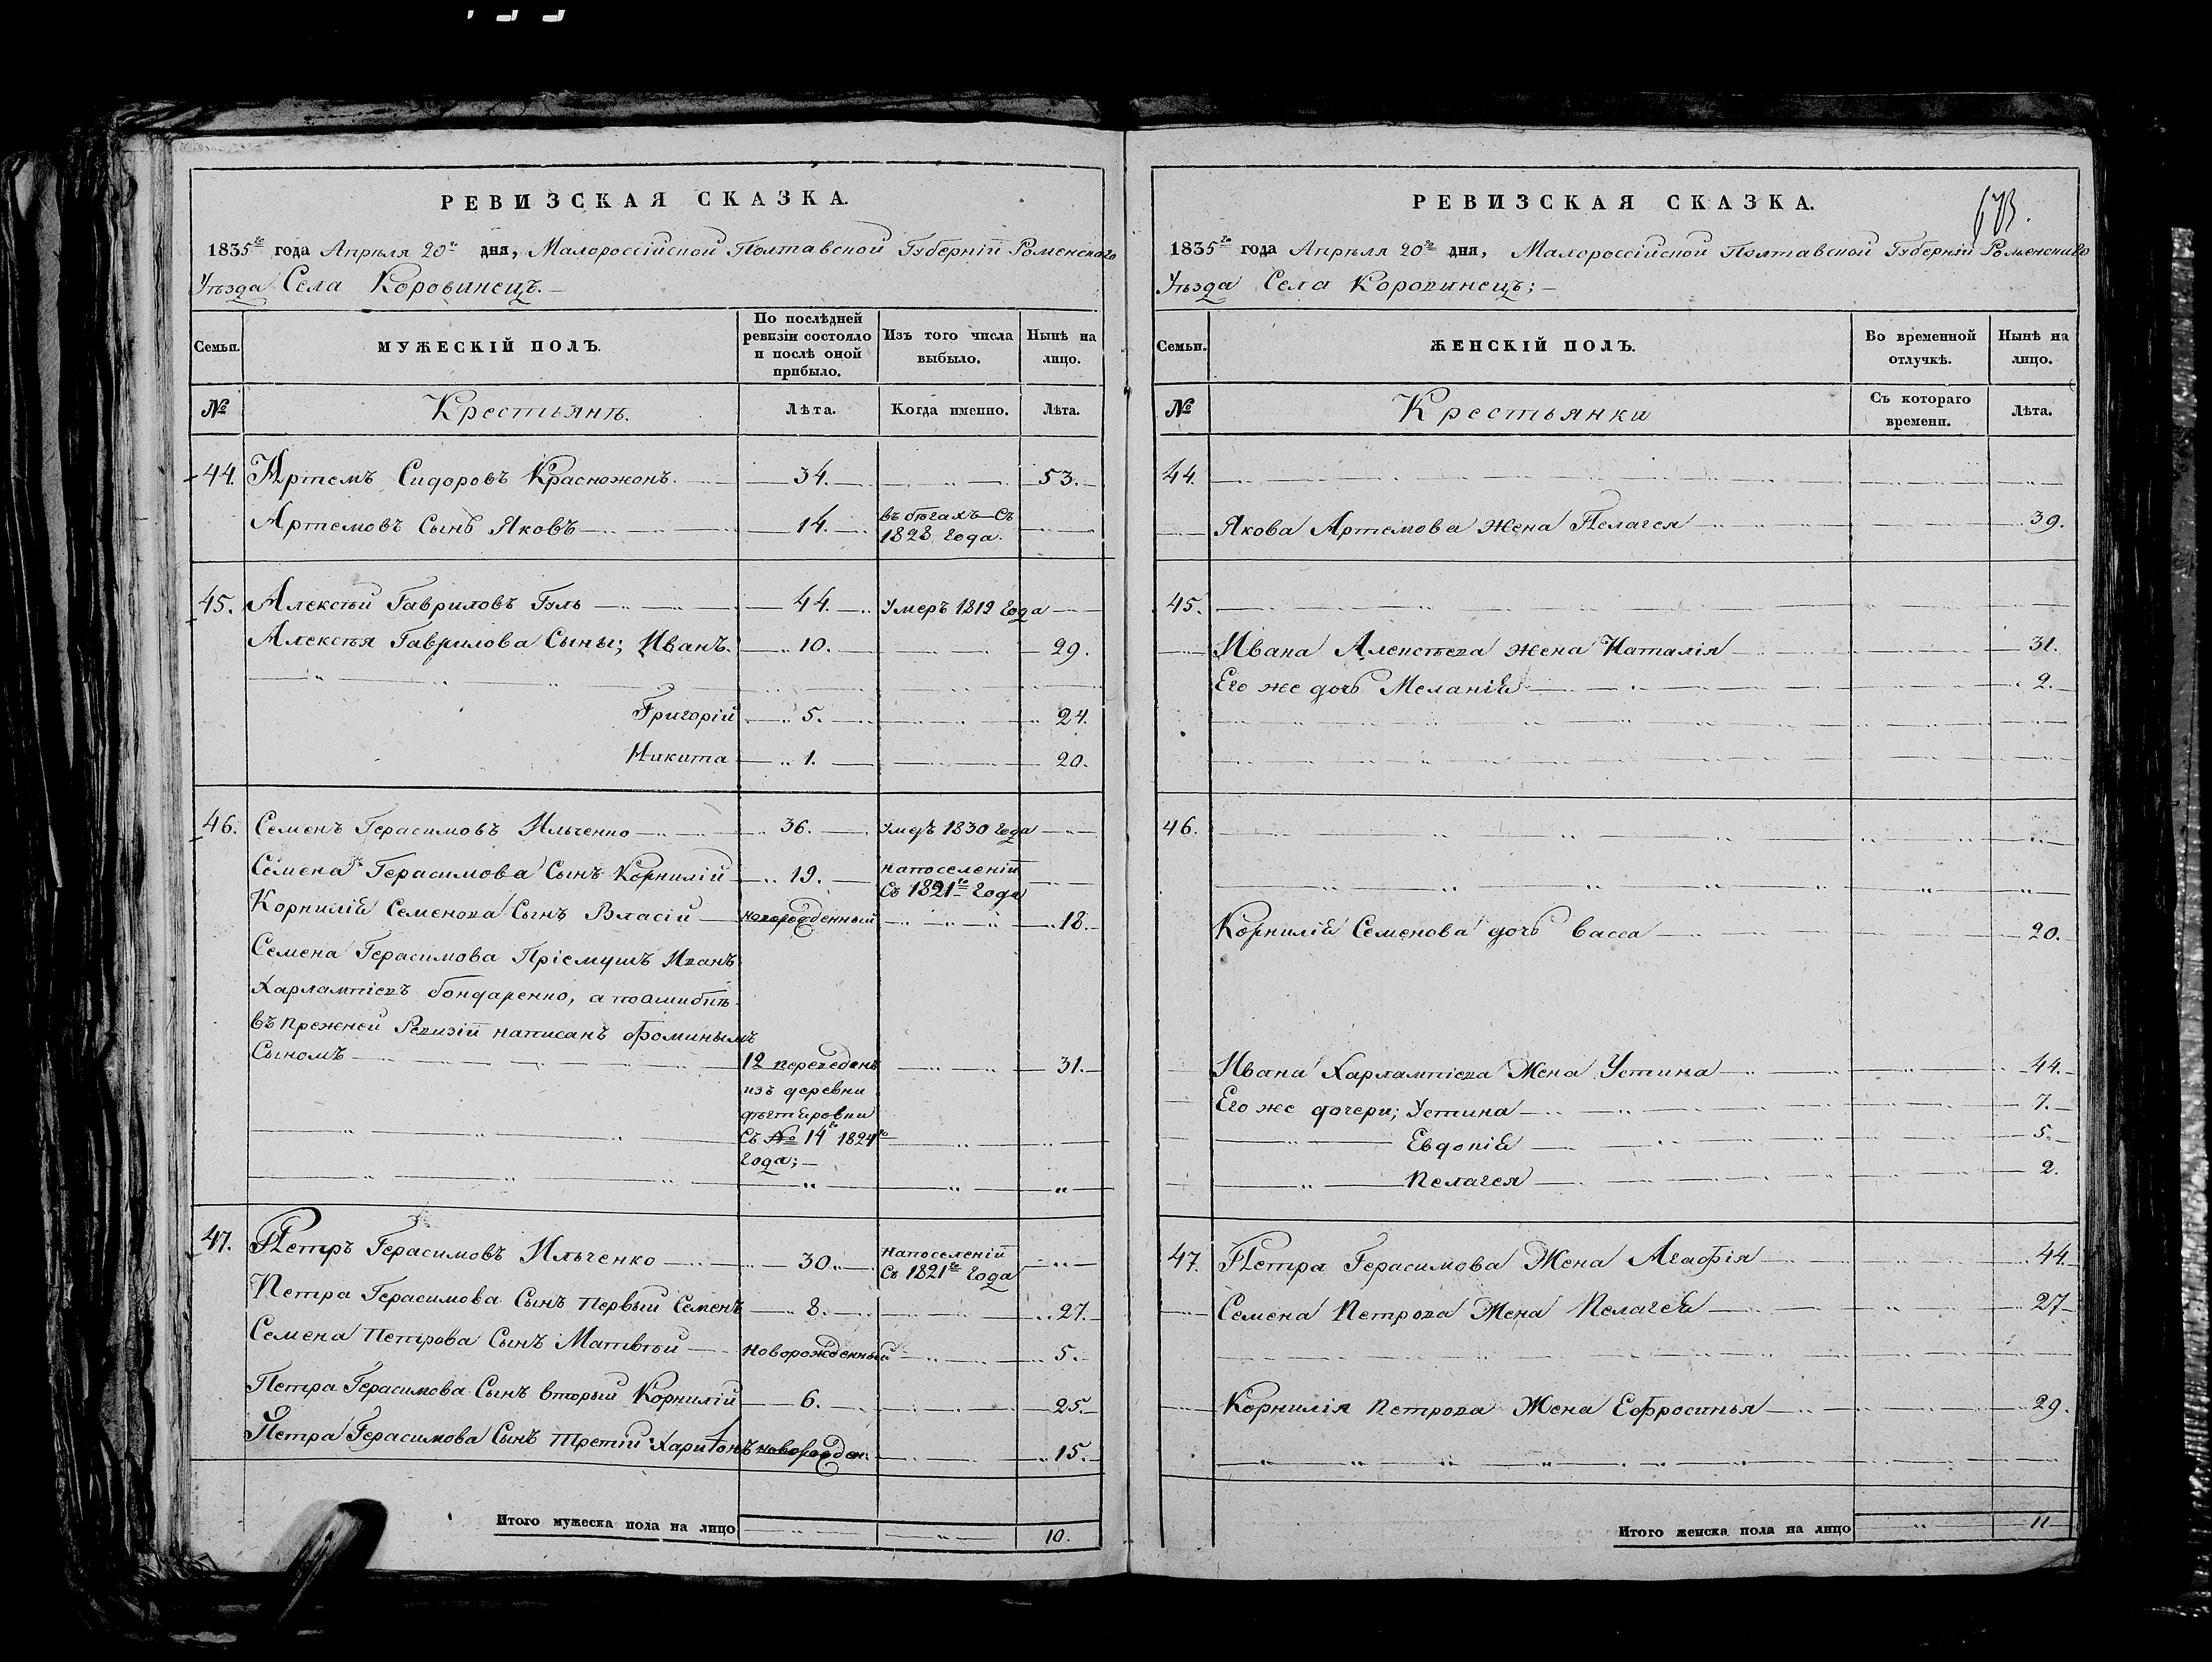 РЕВИЗСКАЯ СКАЗКА.
1835го года Апрѣля 20го дня, Малороссійской Полтавской Губерніи Роменскаго
Уѣзда Села Коровинецъ.
Семьи.
МУЖЕСКІЙ ПОЛЪ.
По послѣдней
ревизіи состояло
и послѣ оной
прибыло.
Изъ того числа
выбыло.
Нынѣ на
лицо.
№ Крестьянѣ. Лѣта. Когда именно. Лѣта.
44. Артемъ Сидоровъ Красножонъ. 34. 53.
Артемовъ Сынъ Яковъ 14. въ бѣгахъ Съ
1828 года.
45. Алексѣй Гавриловъ Гуль 44. Умеръ 1819 года
Алексѣя Гаврилова Сыны; Иванъ. 10. 29.
Григорій 5. 24.
Никита 1. 20.
46. Семенъ Герасимовъ Ильченко 36. Умеръ 1830 года
Семена Герасимова Сынъ Корнилій 19. на поселеніи
Съ 1821го года
Корнилія Семенова Сынъ Власій новорожденный 18.
Семена Герасимова Пріемышъ Иванъ
Харлампіевъ Бондаренко, а по ошибкѣ
въ прежней Ревизіи написанъ Фоминымъ
Сыномъ 12 переведенъ 31.
изъ деревни
Съ № 14го 1824го
года;
47. Петръ Герасимовъ Ильченко 30. На поселеніи
Съ 1821го года
Петра Герасимова Сынъ первый Семенъ 8. 27.
Семена Петрова Сынъ Матвѣй новорожденный 5.
Петра Герасимова Сынъ вторый Корнилій 6. 25.
Петра Герасимова Сынъ третій Харитонъ новорожден. 15.
Итого мужеска пола на лицо 10.
РЕВИЗСКАЯ СКАЗКА.
1835го года Апрѣля 20го дня, Малороссійской Полтавской Губерніи Роменскаго
Уѣзда Села Коровинецъ;
Семьи.
ЖЕНСКІЙ ПОЛЪ.
Во временной
отлучкѣ.
Нынѣ на
лицо.
№ Крестьянки
Съ котораго
времени.
Лѣта.
44.
Якова Артемова жена Пелагея 39.
45.
Ивана Алексѣева жена Наталія 31.
Его же дочь Меланія 2.
46.
Корнилія Семенова дочь Васса 20.
Ивана Харлампіева Жена Устина 44.
Его же дочери; Устина 7.
Евдокія 5.
Пелагея 2.
47. Петра Герасимова Жена Агафія 44.
Семена Петрова Жена Пелагея 27
Корнилія Петрова Жена Ефросинья 29.
Итого женска пола на лицо 11